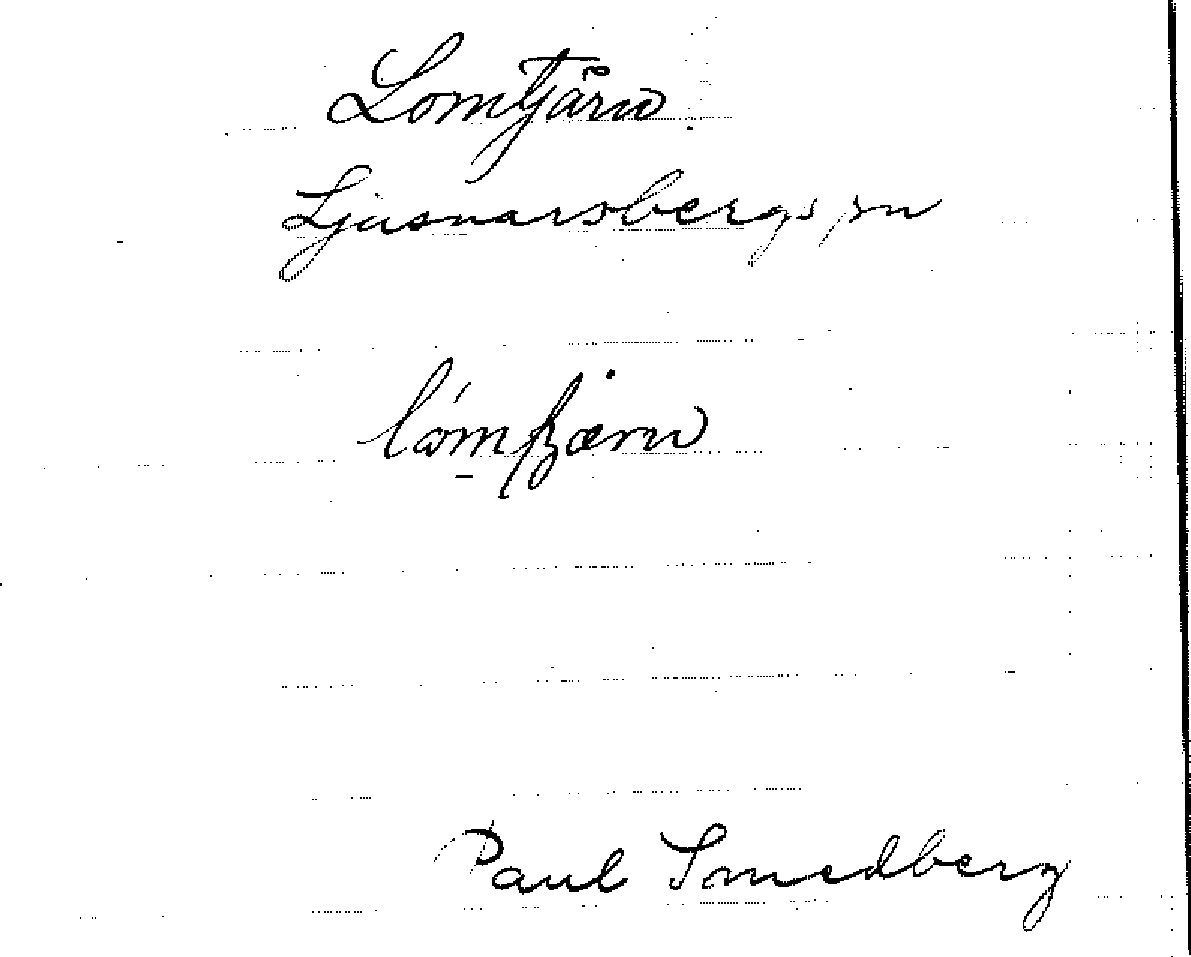 Lomtjärn
Ljusnarsbergs sn
Paul Smedberg